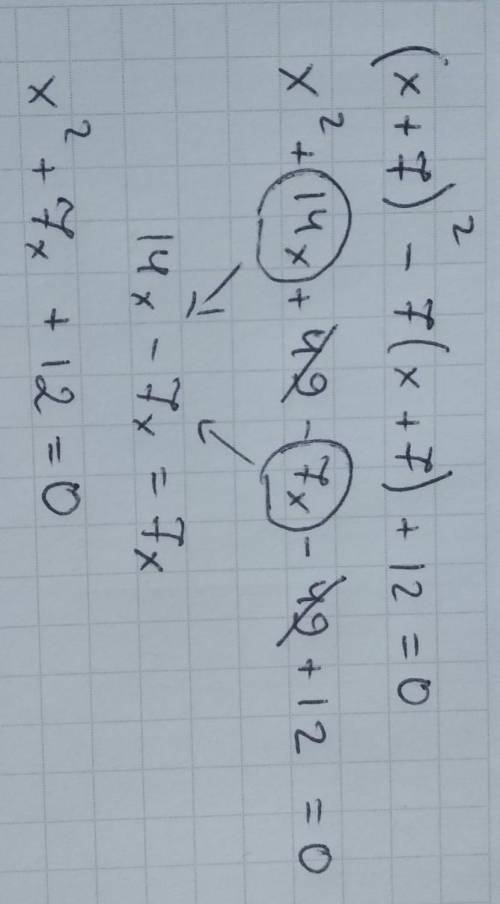 (x + 7)² - 7(x + 7) + 12 = 0
x² + 14x + 49 - 7x - 49 + 12 = 0
14x - 7x = 7x
x² + 7x + 12 = 0